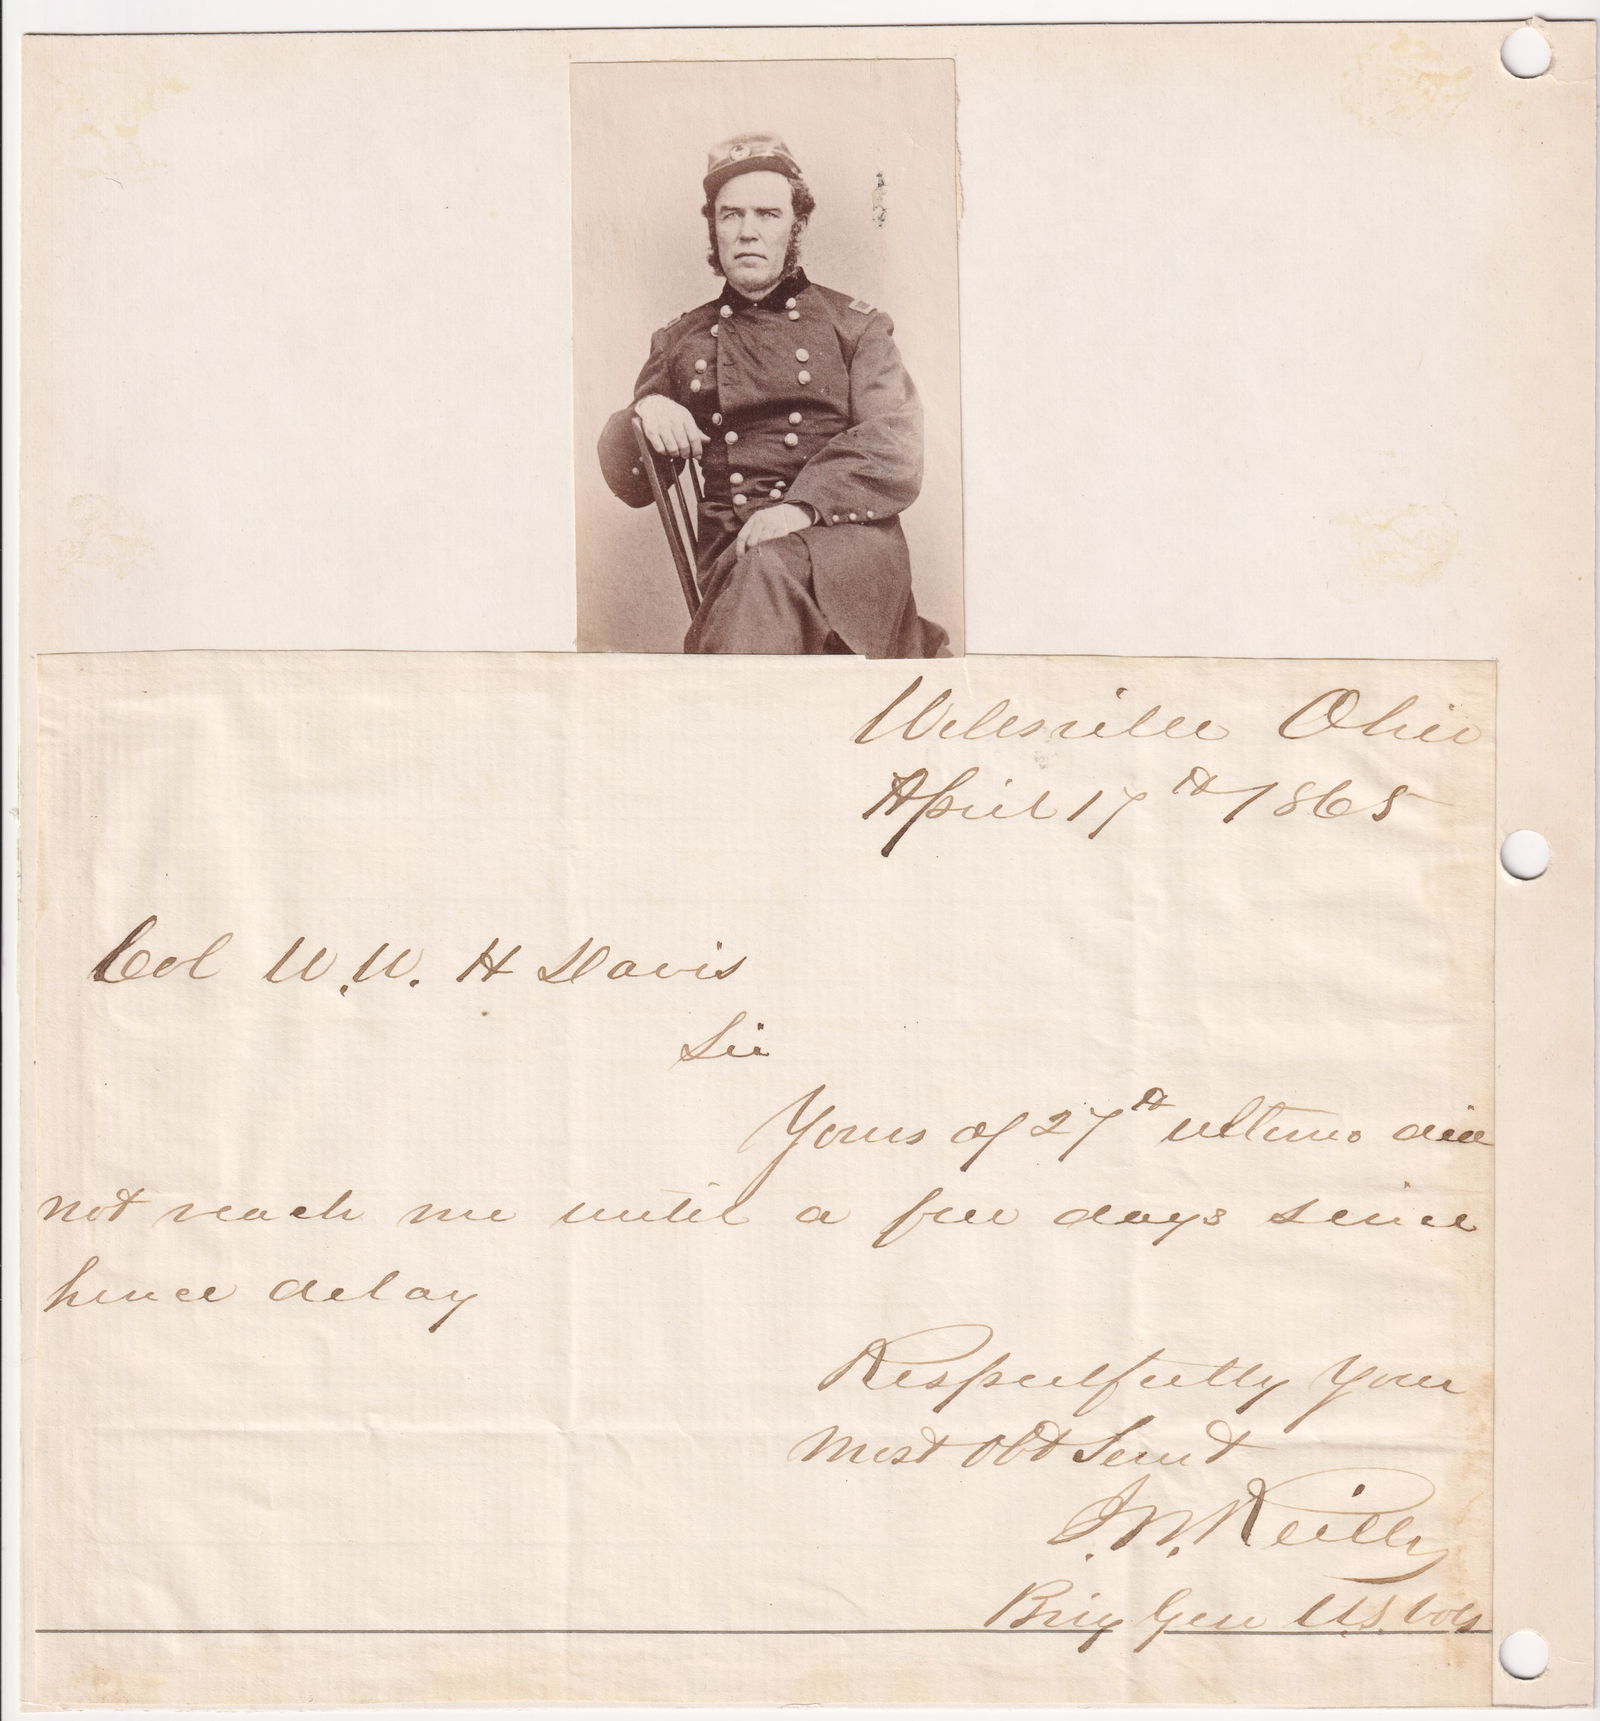 Wellsville Ohio
April 17th 1865
Col W. W. H Davis
Sir
Yours of 27th ultimo did
not reach me until a few days since
hence delay
Respectfully Your
most Obt Servt
J. W. Reilly
Brig Gen U.S. Vols